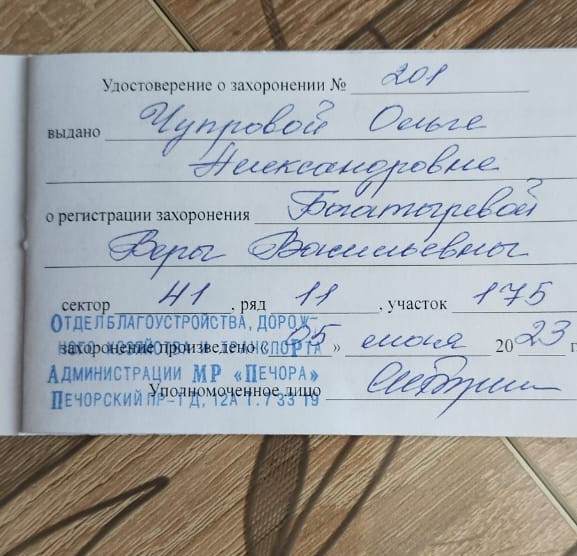 Удостоверение о захоронении № 201
выдано Чупровой Ольге
Александровне
о регистрации захоронения Богатыревой
Веры Васильевны
сектор 41, ряд 11, участок 175
ОТДЕЛ БЛАГОУСТРОЙСТВА, ДОРОЖ-
НОГО ХОЗЯЙСТВА И ТРАНСПОРТА
захоронение произведено «05» июля 2023 г
АДМИНИСТРАЦИИ МР «ПЕЧОРА»
Уполномоченное лицо
ПЕЧОРСКИЙ ПР-Т Д. 12А Т. 7 33 19